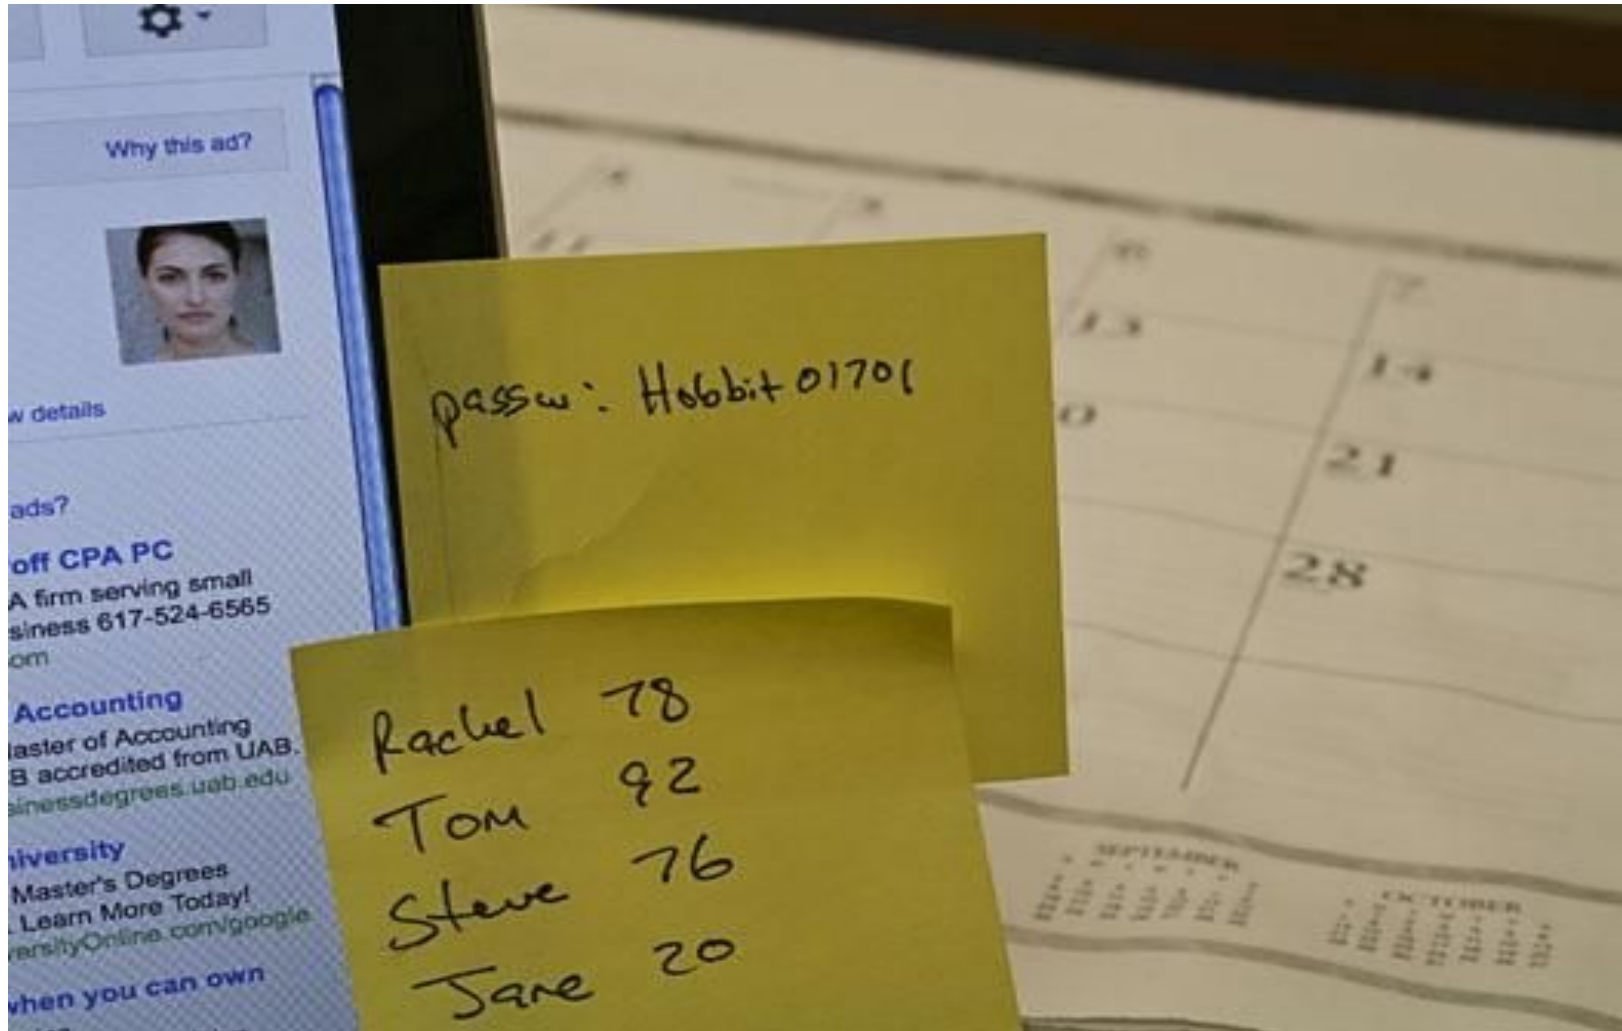 Why this ad?
w details
ads?
off CPA PC
A firm serving small
siness 617-524-6565
om
Accounting
laster of Accounting
B accredited from UAB.
sinessdegrees.uab.edu
iversity
Master's Degrees
Learn More Today!
versityOnline.com/google
when you can own
passw: Hobbit01701
Rachel 78
Tom 92
Steve 76
Jane 20
4
5
6
7
11
13
14
0
21
28
SEPTEMBER
OCTOBER